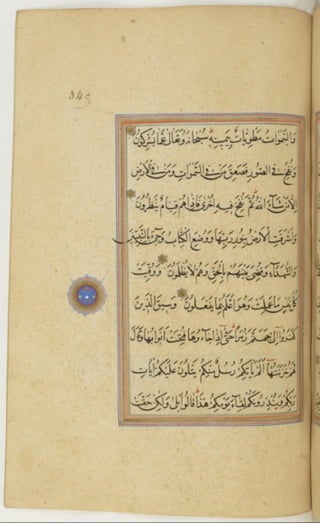 345
وَالسَّمٰوَاتُ مَطْوِيَّاتٌ بِيَمِينِهِ سُبْحَانَهُ وَتَعَالَى عَمَّا يُشْرِكُونَ
وَنُفِخَ فِي الصُّورِ فَصَعِقَ مَنْ فِي السَّمٰوَاتِ وَمَنْ فِي الْأَرْضِ
إِلَّا مَنْ شَاءَ اللهُ ثُمَّ نُفِخَ فِيهِ أُخْرَى فَإِذَا هُمْ قِيَامٌ يَنْظُرُونَ
وَأَشْرَقَتِ الْأَرْضُ بِنُورِ رَبِّهَا وَوُضِعَ الْكِتَابُ وَجِيءَ بِالنَّبِيِّينَ
وَالشُّهَدَاءِ وَقُضِيَ بَيْنَهُمْ بِالْحَقِّ وَهُمْ لَا يُظْلَمُونَ وَوُفِّيَتْ
كُلُّ نَفْسٍ مَا عَمِلَتْ وَهُوَ أَعْلَمُ بِمَا يَفْعَلُونَ وَسِيقَ الَّذِينَ
كَفَرُوا إِلَى جَهَنَّمَ زُمَرًا حَتَّى إِذَا جَاءُوهَا فُتِحَتْ أَبْوَابُهَا وَقَالَ
لَهُمْ خَزَنَتُهَا أَلَمْ يَأْتِكُمْ رُسُلٌ مِنْكُمْ يَتْلُونَ عَلَيْكُمْ آيَاتِ
رَبِّكُمْ وَيُنْذِرُونَكُمْ لِقَاءَ يَوْمِكُمْ هٰذَا قَالُوا بَلَى وَلٰكِنْ حَقَّتْ